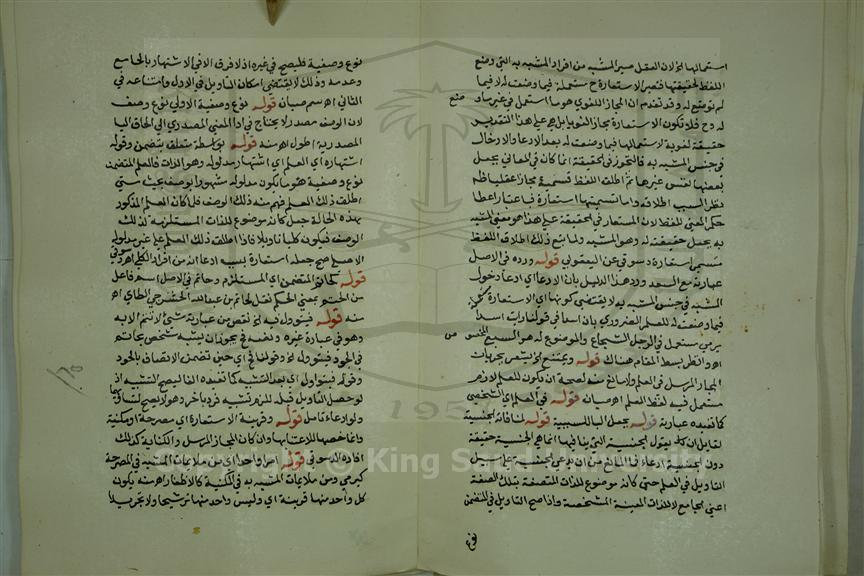 استعمالها لان العقل صير المشبه من افراد المشبه به التي وضع
اللفظ لحقيقتها فتصير الاستعارة ح مستعملة فيما وضعت له لا فيما
لم توضع له وقد تقدم ان المجاز اللغوي هو ما استعمل في غير ما
وضع
له وح فلا تكون الاستعارة مجازا لغويا بل هي على هذا التقدير
حقيقة لغوية لاستعمالها فيما وضعت له بعد الادعا والادخال
في جنس المشبه به فالتجوز في الحقيقة انما كان في المعاني بجعل
بعضها نفس غيرها ثم اطلق اللفظ فتسمية مجازا عقليا ظم
نظرا لسبب اطلاقه واما تسميتها استعارة فباعتبار اعطا
حكم المعنى للفظ لان المستعار في الحقيقة على هذا هو معنى المشبه
به بجعل حقيقته له وهو المشبه ولما تبع ذلك اطلاق اللفظ
سمي استعارة دسوقي عن اليعقوبي قوله ورده في الاصل
عبارته مع السعد ورد هذا الدليل بان الادعا اي ادعا دخول
المشبه في جنس المشبه به لا يقتضي كونها اي الاستعارة مستعملة
فيما وضعت له للعلم الضروري بان اسدا في قولنا رايت اسدا
يرمي مستعمل في الرجل الشجاع والموضوع له هو السبع المخصوص
اه وانظر بسط المقام هناك قوله ويمتنع الخ يشعر بجريان
المجاز المرسل في العلم ولا مانع منه لصحة ان يكون للعلم لازم
مستعمل فيه لفظ العلم اه صبان قوله في العلم اي الشخصي
كما تفيده عبارته قوله بجعل البا للسببية قوله لمنافاته الجنسية
لقايل ان يقول الجنسية التي ينافيها انما هي الجنسية حقيقة
دون الجنسية ادعاء فما المانع من ان يدعى الجنسية على سبيل
التاويل في العلم حتى كانه موضوع للذات المتصفة بتلك الصفة
اعني الجامع لا للذات المعينة المشخصة واذا صح التاويل في المتضمن
نوع
نوع وصفية فليصح في غيره اذ لا فرق الا في الاشتهار بالجامع
وعدمه وذلك لا يقتضي امكان التاويل في الاول وامتناعه في
الثاني اه سم صبان قوله نوع وصفية الاولى نوع وصف
لان الوصف مصدر لا يحتاج في اداء المعنى المصدري الى الحاق اليا
المصدرية اطول اه منه قوله بواسطة متعلق بتضمن وقوله
اشتهاره اي العلم اي اشتهار مدلوله وهو الذات فالعلم المتضمن
نوع وصفية هو ما يكون مدلوله مشهورا بوصف بحيث متى
اطلق ذلك العلم فهم منه ذلك الوصف فلما كان العلم المذكور
بهذه الحالة جعل كانه موضوع للذات المستلزمة لذلك
الوصف فيكون كليا تاويلا فاذا اطلق ذلك العلم على غير مدلوله
الاصلي صح جعله استعارة بسبب ادعا انه من افراد الكلي اه دسوقي
قوله كحاتم المتضمن اي المستلزم وحاتم في الاصل اسم فاعل
من الحتم بمعنى الحكم نقل لحاتم بن عبد الله الحشرجي الطاي اه
منه قوله فيتوول فيه الخ نقص من عبارته شيئ لا تتم الا به
وهو في عبارة غيره ونصه فح يجوز ان يشبه شخص بحاتم
في الجود فيتوول الخ وقولنا فح اي حين تضمن الاتصاف بالجود
وقوله فيتاول اي بعد التشبيه كما تفيده الفا ليصح التشبيه اذ
لو حصل التاويل قبله لم يتم تشبيه فرد باخر وهو لا يصح لتساويهما
ولو ادعاء تامل قوله وقرينة الاستعارة اي مصرحة او مكنية
وانما خصها للاعتنا بها وان كان المجاز المرسل والكناية كذلك
افاده الدسوقي قوله امر واحد اي من ملايمات المشبه في المصرحة
كيرمي ومن ملايمات المشبه به في المكنية كالاظفار اه منه يكون
كل واحد منها قرينة اي وليس واحد منها ترشيحا ولا تجريدا
1957
© King Saud University